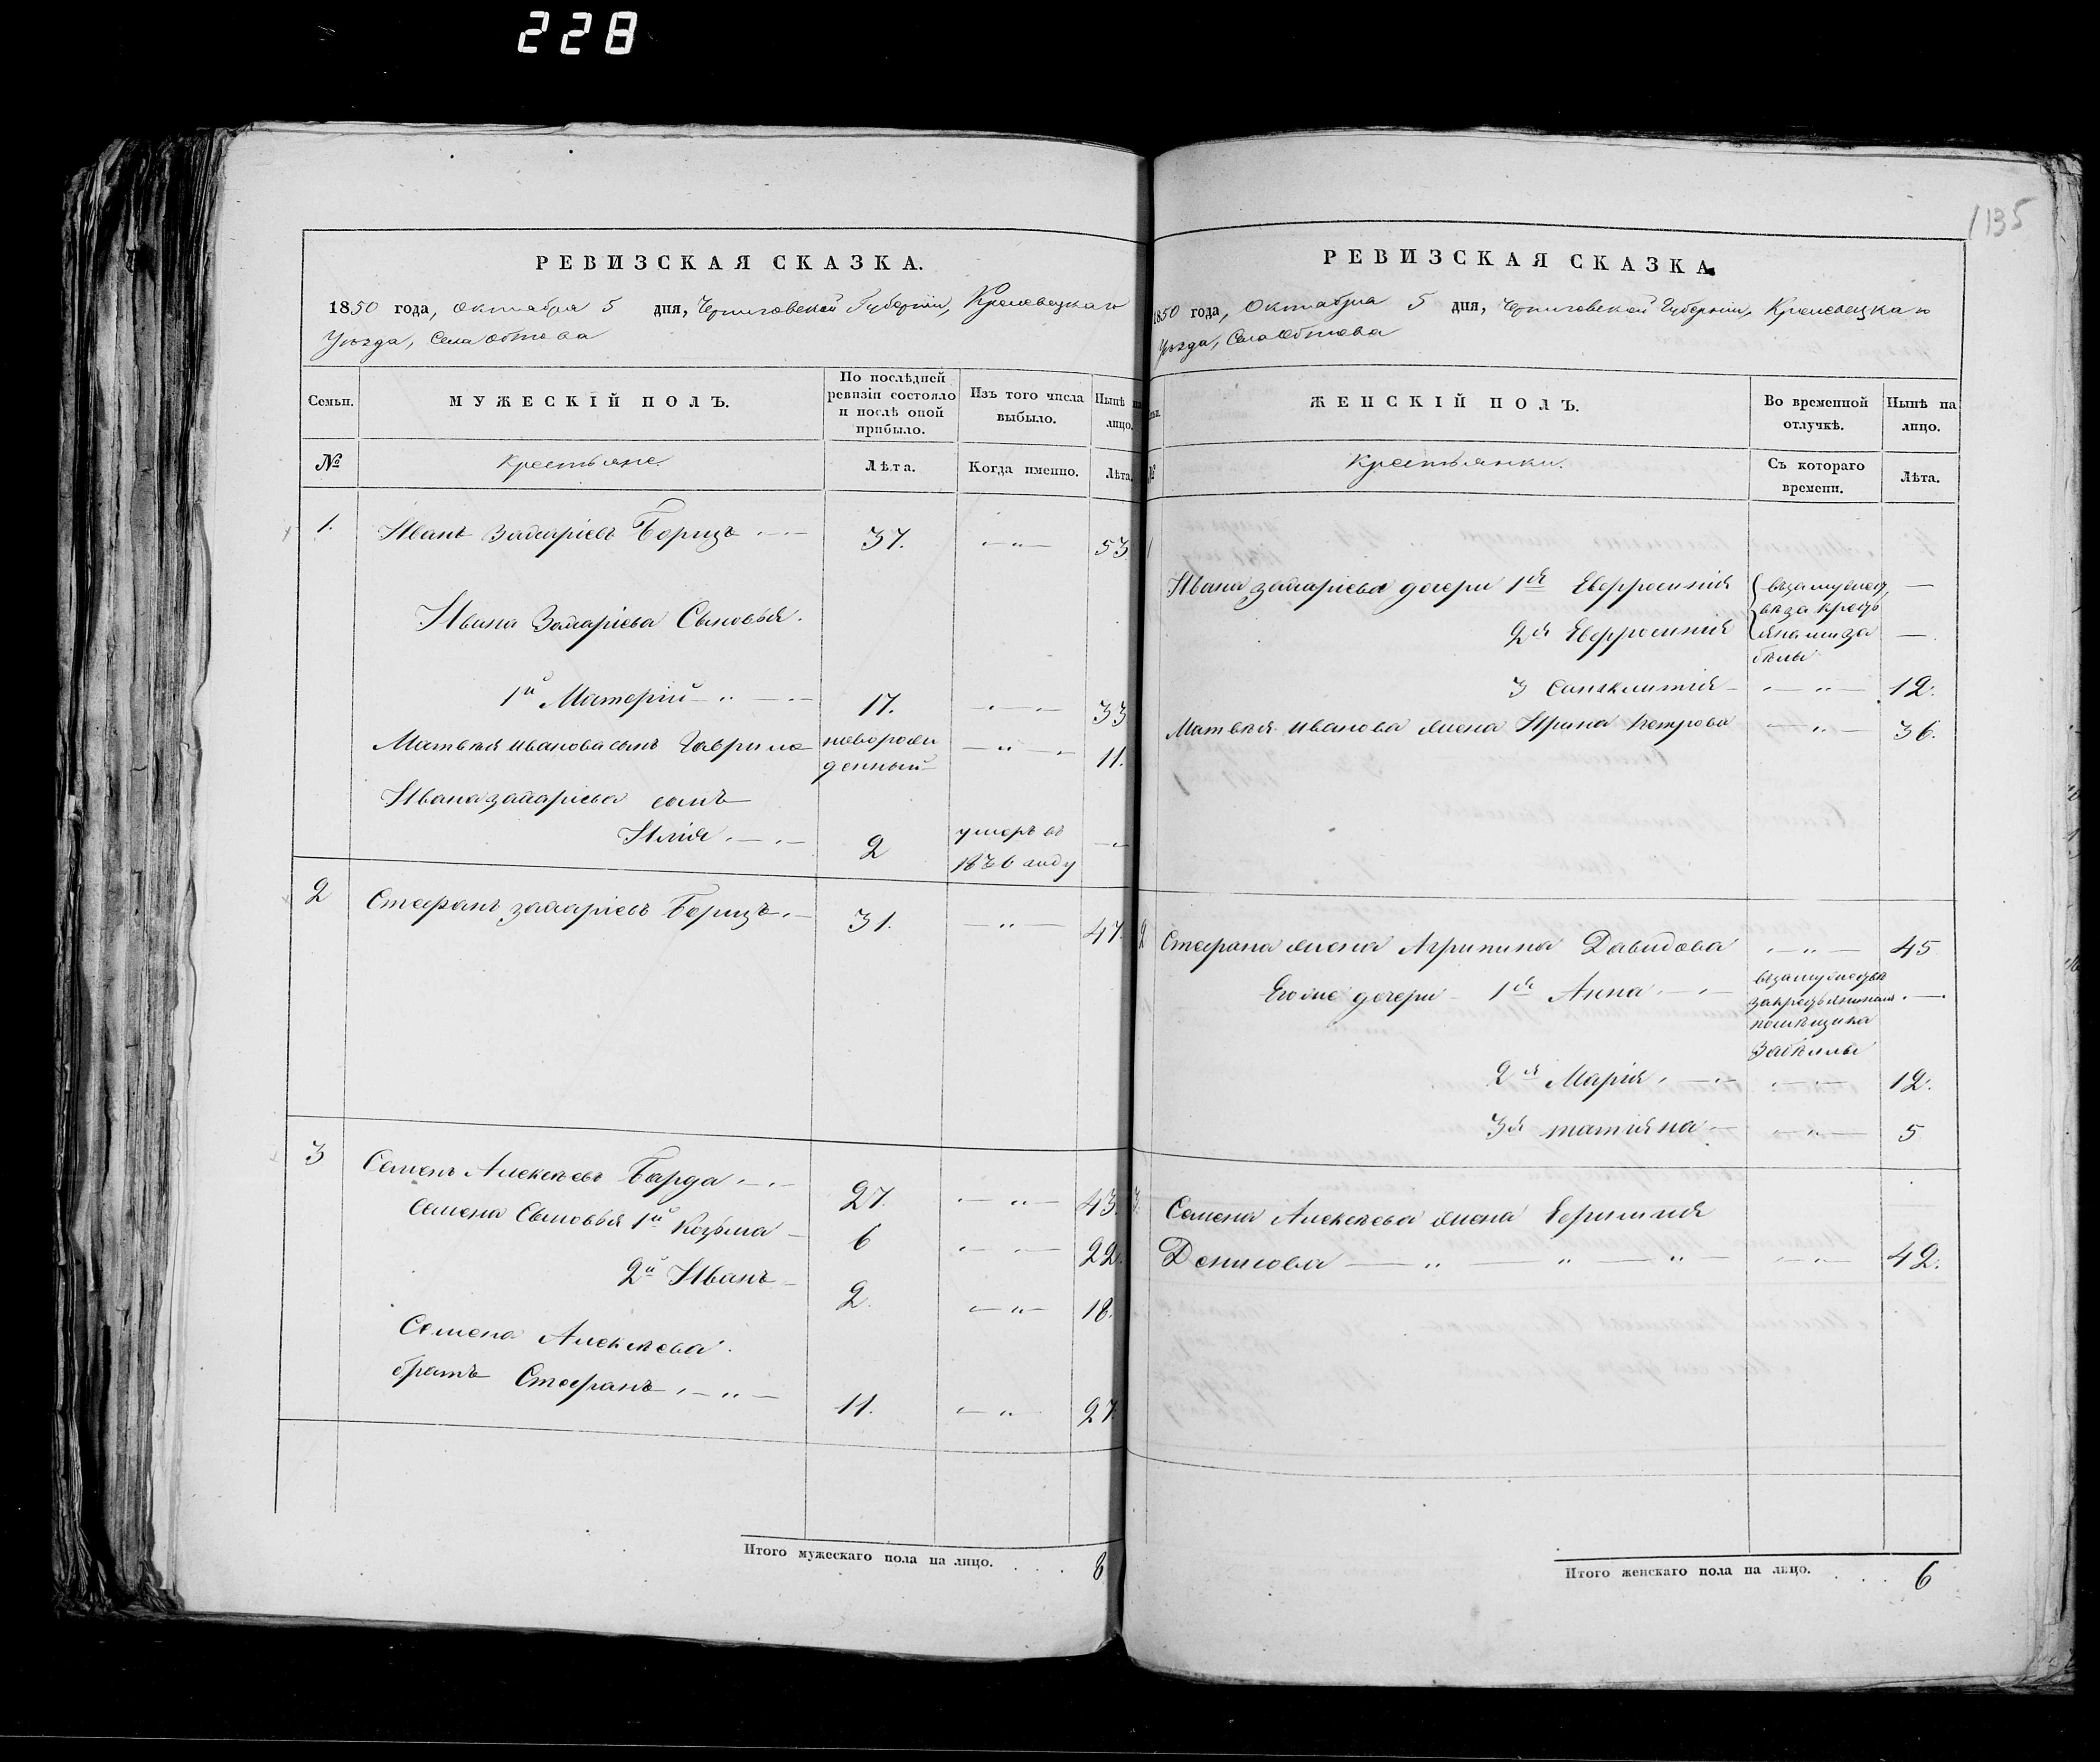 228
135
РЕВИЗСКАЯ СКАЗКА.
1850 года, Октября 5 дня, Черниговской Губерніи, Кролевецкаго
Уѣзда, Села Обтова
Семьи.
МУЖЕСКІЙ ПОЛЪ.
По послѣдней ревизіи состояло и послѣ оной прибыло.
Изъ того числа выбыло.
Нынѣ на лицо.
№
Крестьяне.
Лѣта.
Когда именно.
Лѣта.
1. Иванъ Захаріевъ Борщъ 37. 53
Ивана Захаріева Сыновья.
1й Матвѣй 17. 33
Матвѣя Иванова сынъ Гаврило новорожденный 11.
Ивана Захаріева сынъ
Илія 2 умеръ въ 1836 году
2 Стефанъ Захаріевъ Борщъ 31. 47.
3 Семенъ Алексѣевъ Барда 27. 43.
Семена Сыновья 1й Козьма 6 22.
2й Иванъ 2. 18.
Семена Алексѣева
братъ Стефанъ 11. 27.
Итого мужескаго пола на лицо. . . . 8
РЕВИЗСКАЯ СКАЗКА
1850 года, Октября 5 дня, Черниговской Губерніи, Кролевецкаго
Уѣзда, Села Обтова
ЖЕНСКІЙ ПОЛЪ.
Во временной отлучкѣ.
Нынѣ на лицо.
№
Крестьянки.
Съ котораго времени.
Лѣта.
1
Ивана Захаріева дочери 1я Евфросинія
2я Евфросинія
3 Санклитія 12.
Матвѣя Иванова жена Ирина Петрова 36.
2 Стефана жена Агрипина Давидова 45
Его же дочери 1я Анна въ замужествѣ за крестьяниномъ помѣщика Забѣлы
2я Марія 12.
3я татіяна 5
3. Семена Алексѣева жена
Денисова 42.
Итого женскаго пола на лицо. . . . 6